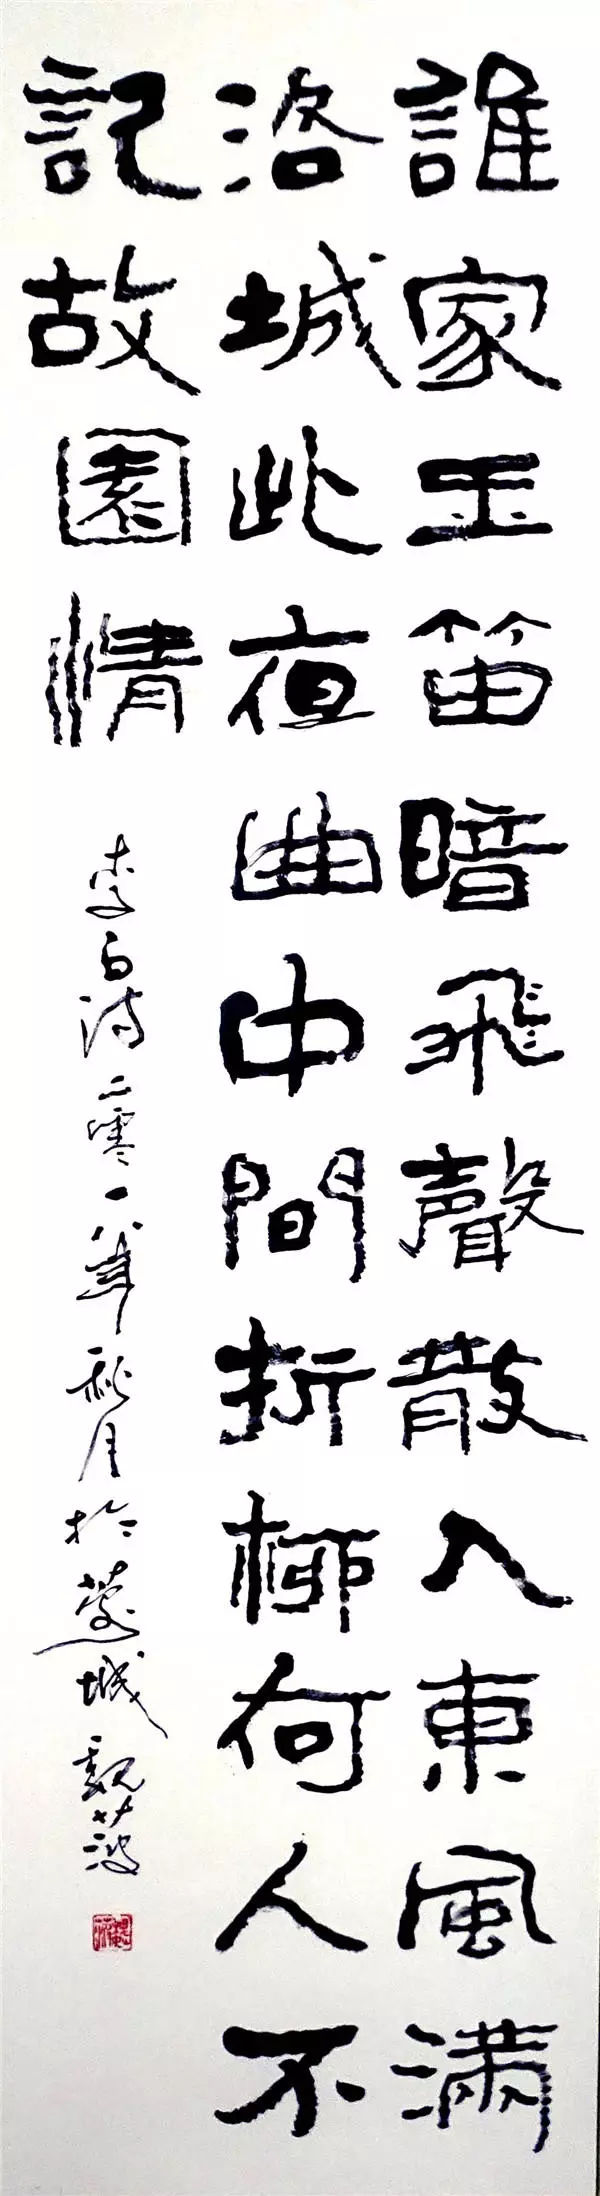 誰家玉笛暗飛聲散入東風滿
洛城此夜曲中間折柳何人不
記故園情
李白诗二零一八年秋月於城